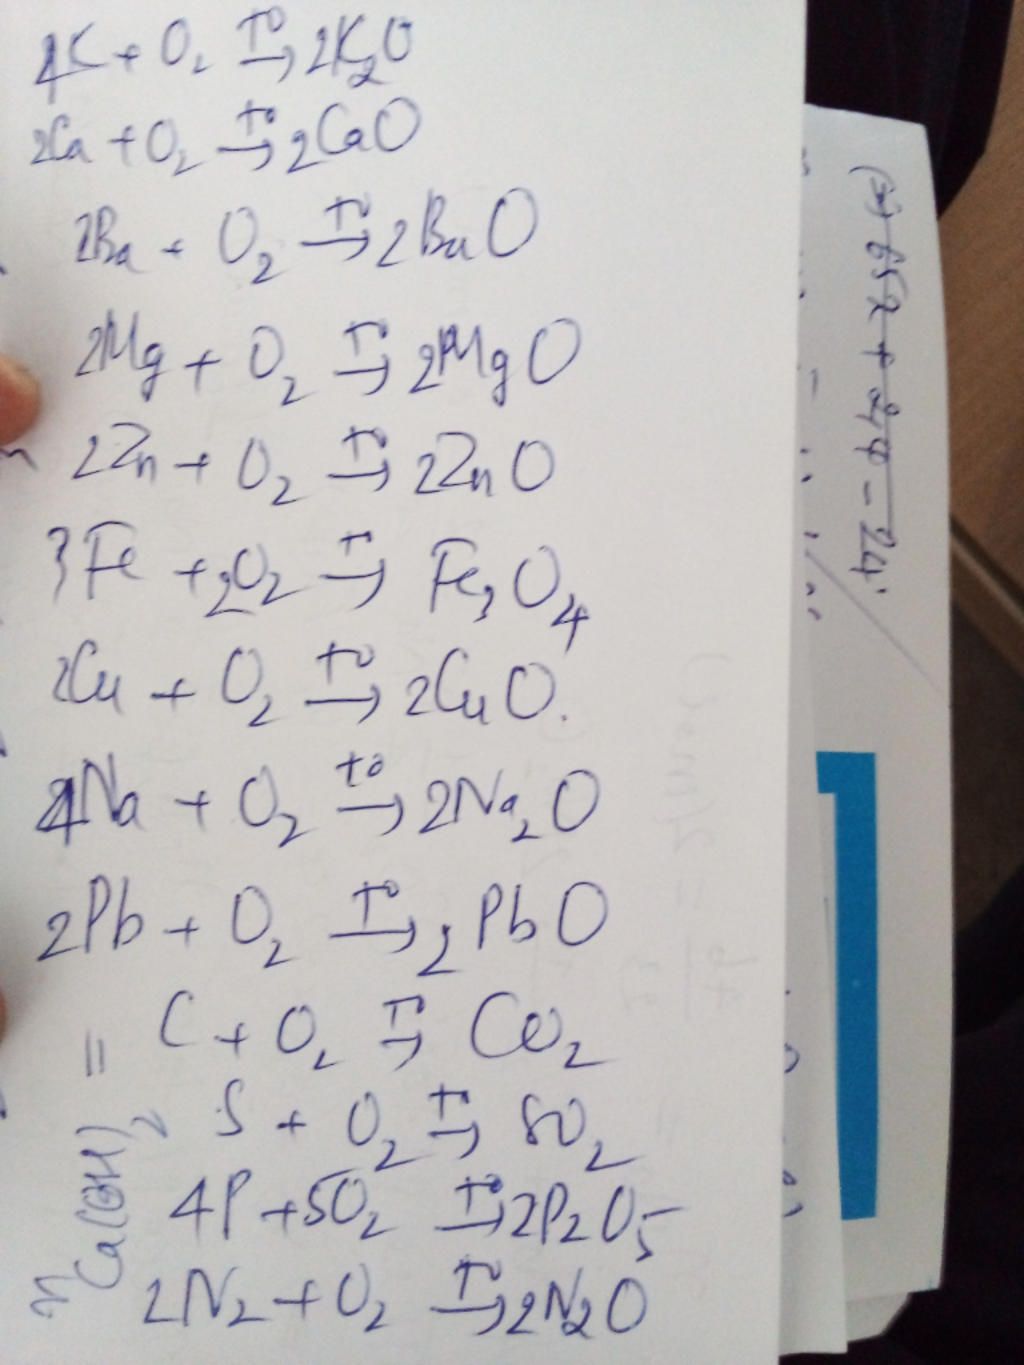 4K + O2 t° → 2K2O
2Ca + O2 t° → 2CaO
2Ba + O2 t° → 2BaO
2Mg + O2 t° → 2MgO
2Zn + O2 t° → 2ZnO
3Fe + 2O2 t° → Fe3O4
2Cu + O2 t° → 2CuO.
4Na + O2 t° → 2Na2O
2Pb + O2 t° → 2PbO
C + O2 t° → CO2
S + O2 t° → SO2
4P + 5O2 t° → 2P2O5
2N2 + O2 t° → 2N2O
n Ca(OH)2 =